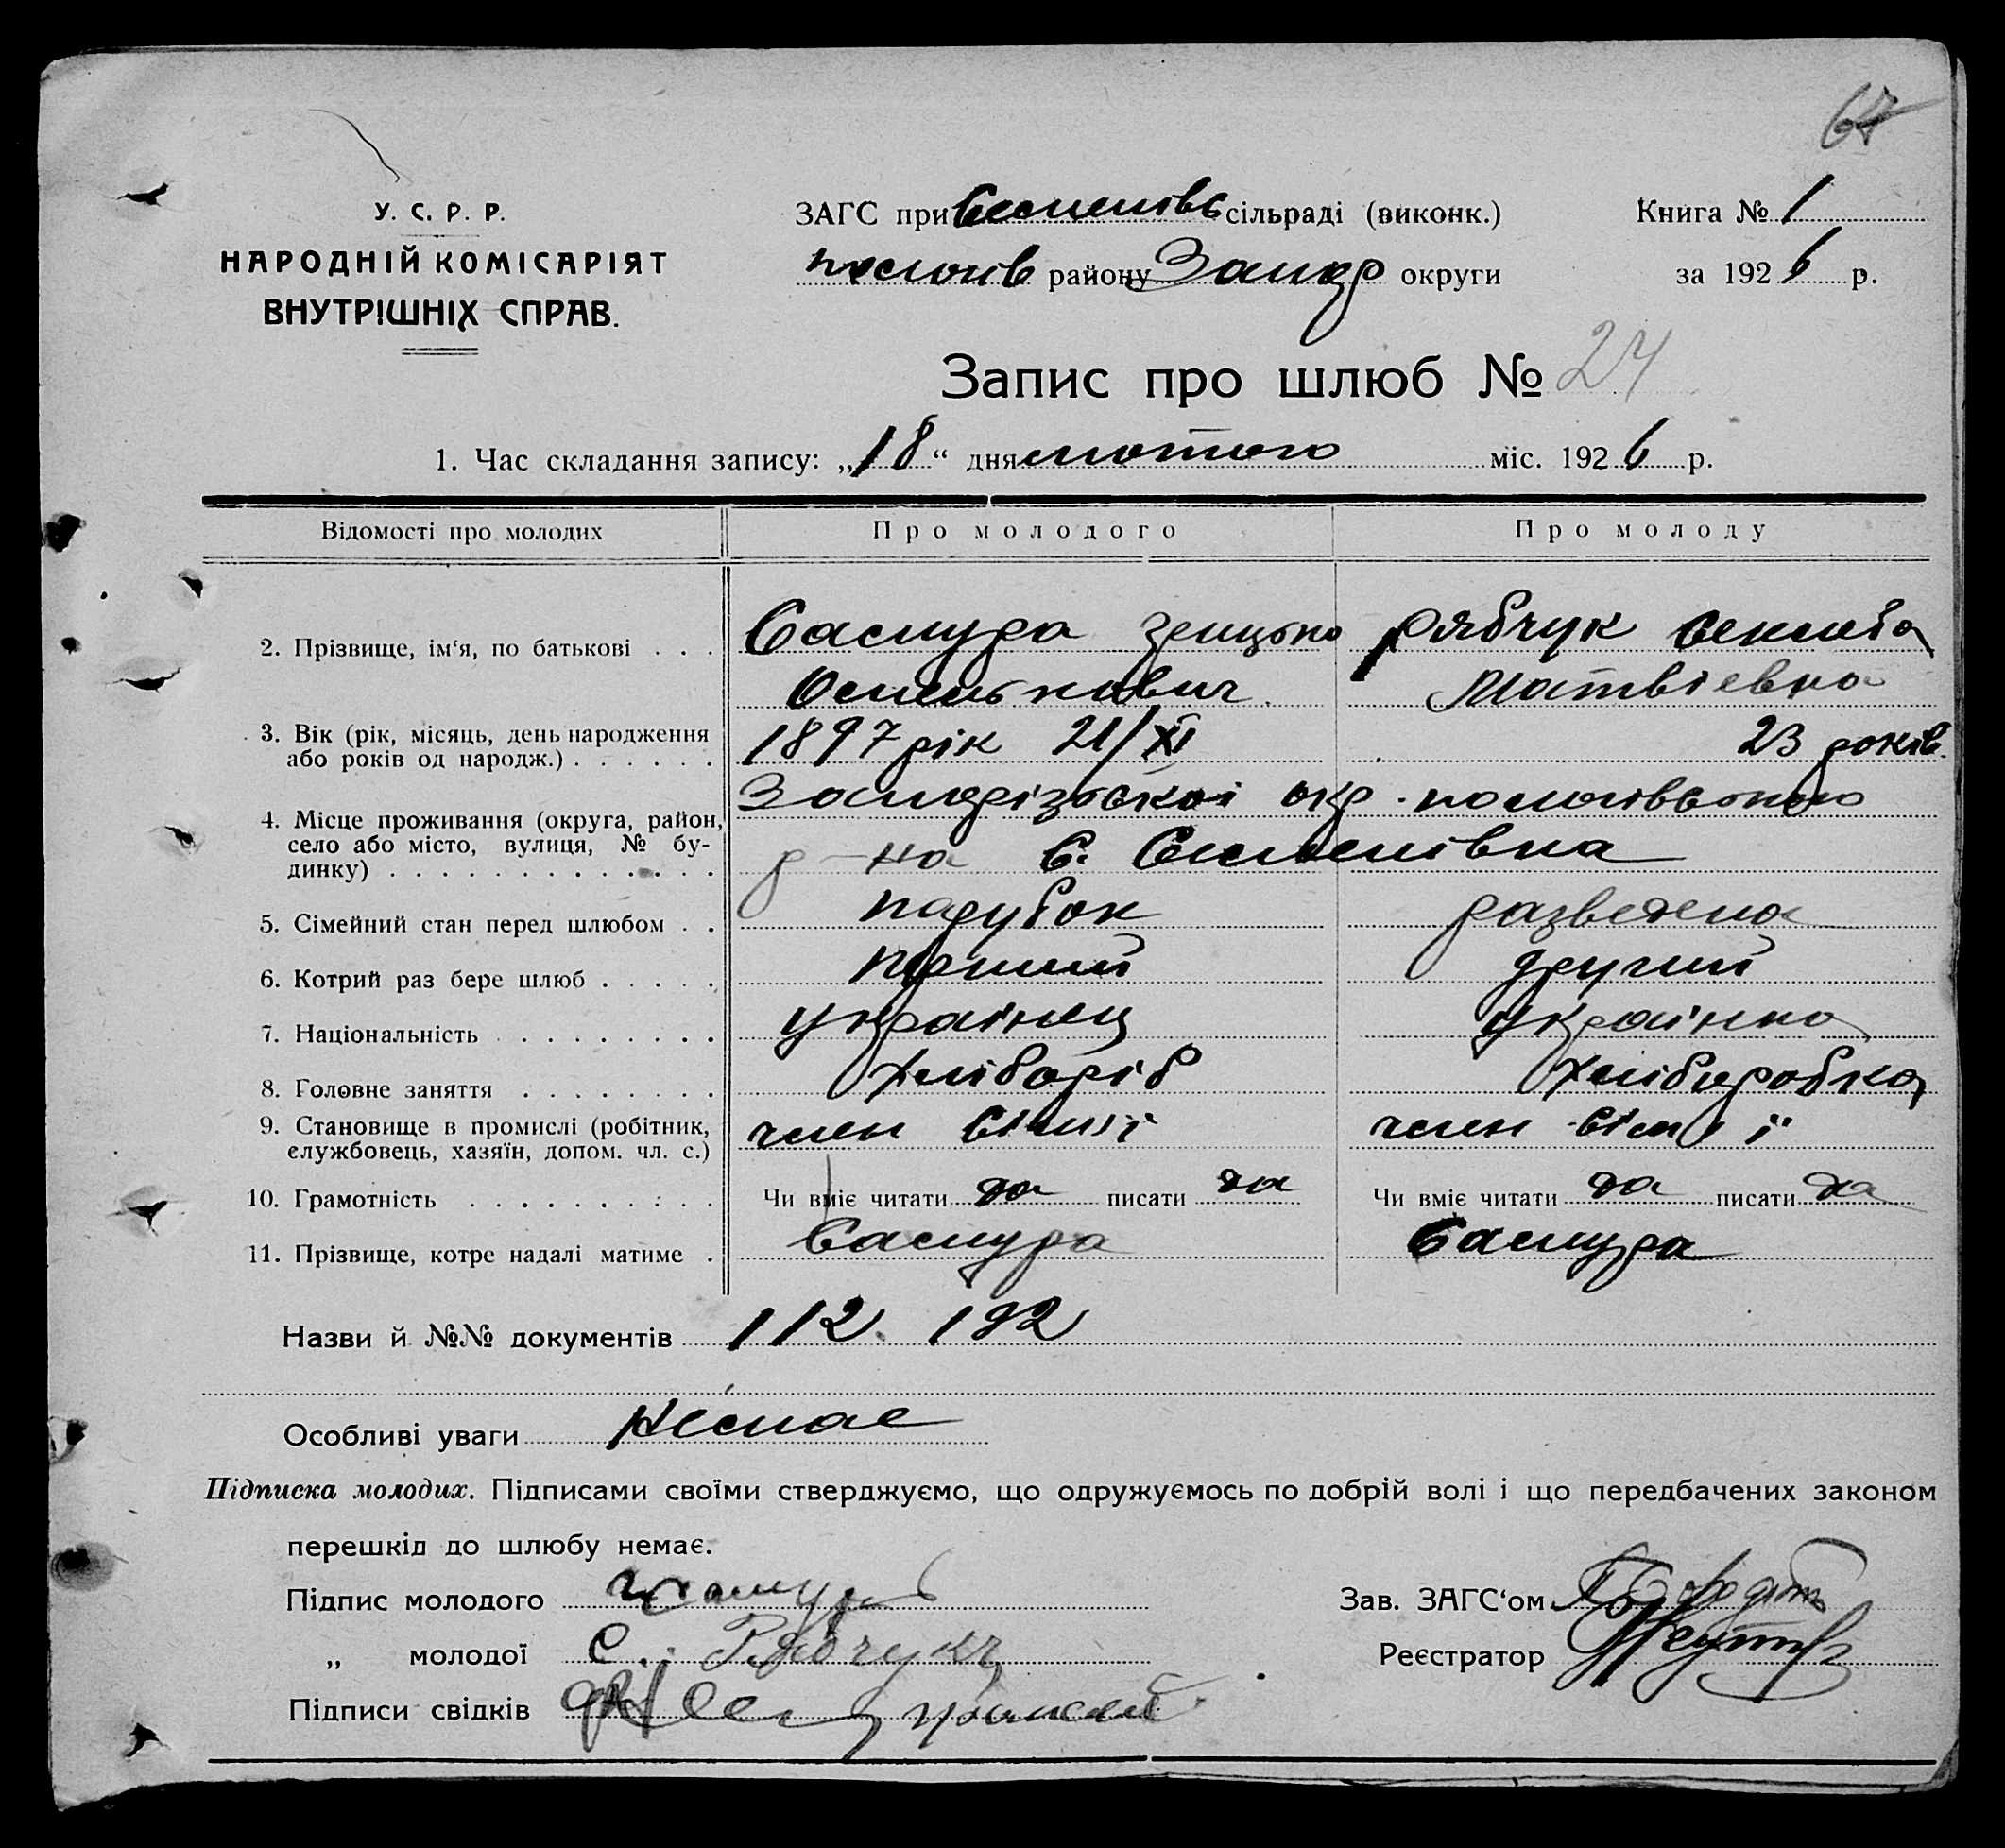 67
У. С. Р. Р.
НАРОДНІЙ КОМІСАРІЯТ
ВНУТРІШНІХ СПРАВ.
ЗАГС при Семенівс сільраді (виконк.)
пологів району Запор округи
Книга № 1
за 1926 р.
Запис про шлюб № 24
1. Час складання запису: „18“ дня лютого міс. 1926 р.
Відомості про молодих Про молодого Про молоду
2. Прізвище, ім‘я, по батькові . . . Самура Грицько Рябчук Секлета
Матвіевна
3. Вік (рік, місяць, день народження
або років од народж.) . . . . . . 1897 рік 21/XI 23 років
Запорізькоі окр. пологівського
4. Місце проживання (округа, район,
село або місто, вулиця, № бу-
динку) . . . . . . . . . . . . . р-на с. Семенівка
5. Сімейний стан перед шлюбом . . парубок разведена
6. Котрий раз бере шлюб . . . . . перший другий
7. Національність . . . . . . . . . українец українка
8. Головне заняття . . . . . . . . хлібороб хліборобка
9. Становище в промислі (робітник,
службовець, хазяїн, допом. чл. с.) член сімії член сімії
10. Грамотність . . . . . . . . . . Чи вміє читати да писати да Чи вміє читати да писати да
11. Прізвище, котре надалі матиме . Самура Самура
Назви й №№ документів 112. 192
Особливі уваги Немае
Підписка молодих. Підписами своїми стверджуємо, що одружуємось по добрій волі і що передбачених законом
перешкід до шлюбу немає.
Підпис молодого
Зав. ЗАГС‘ом
„ молодої С. Рябчук
Реєстратор
Підписи свідків